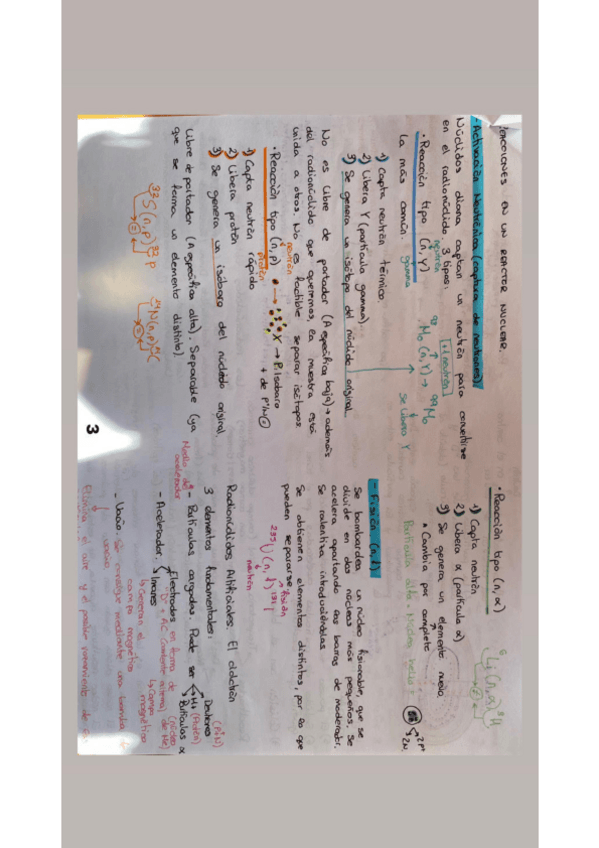 REACCIONES EN UN REACTOR NUCLEAR.
- Activación Neutrónica (captura de neutrones)
Núclidos diana captan un neutrón para convertirse
en el radionúclido 3 tipos:
• Reacción tipo (n, γ)
neutrón
gamma
la más común.
98Mo (n, γ) → 99Mo
+1 neutrón
se libera γ
1) Capta neutrón térmico.
2) Libera γ (partícula gamma).
3) Se genera un isótopo del núclido original.
No es libre de portador (A específica baja) → además
del radionúclido que queremos, la muestra está
unida a otros. No es factible separar isótopos
• Reacción tipo (n, p)
neutrón
protón
X → P. isobaro
+ de p+ in
1) Capta neutrón rápido
2) Libera protón
3) Se genera un isóbaro del núclido original.
Libre de portador (A específica alta). Separable (ya
que se forma un elemento distinto).
32S (n, p) 32P
14N (n, p) 14C
3
• Reacción tipo (n, α)
1) Capta neutrón
2) Libera α (partícula α)
3) Se genera un elemento nuevo.
* Cambia por completo
Partícula alfa = Núcleo helio =
2p+
2n
6Li (n, α) 3H
- Fisión (n, f)
Se bombardea un núcleo fisionable, que se
divide en dos núcleos más pequeños. Se
acelera apartando las barras de moderador.
Se ralentiza introduciéndolas
Se obtienen elementos distintos, por lo que
pueden separarse.
235U (n, f) 131I
fisión
neutrón
Radionúclidos Artificiales: El ciclotrón
3 elementos fundamentales:
- Partículas cargadas. Puede ser
Deutones
H+ (Protón)
Partículas α
(núcleo de He)
Medio del acelerador
- Acelerador.
Electrodos en forma de
"D" → AC (corriente alterna)
Campo
magnético
Imanes
Generan el
campo magnético
- Vacío. Se consigue mediante una bomba
de vacío
Elimina el aire y posible